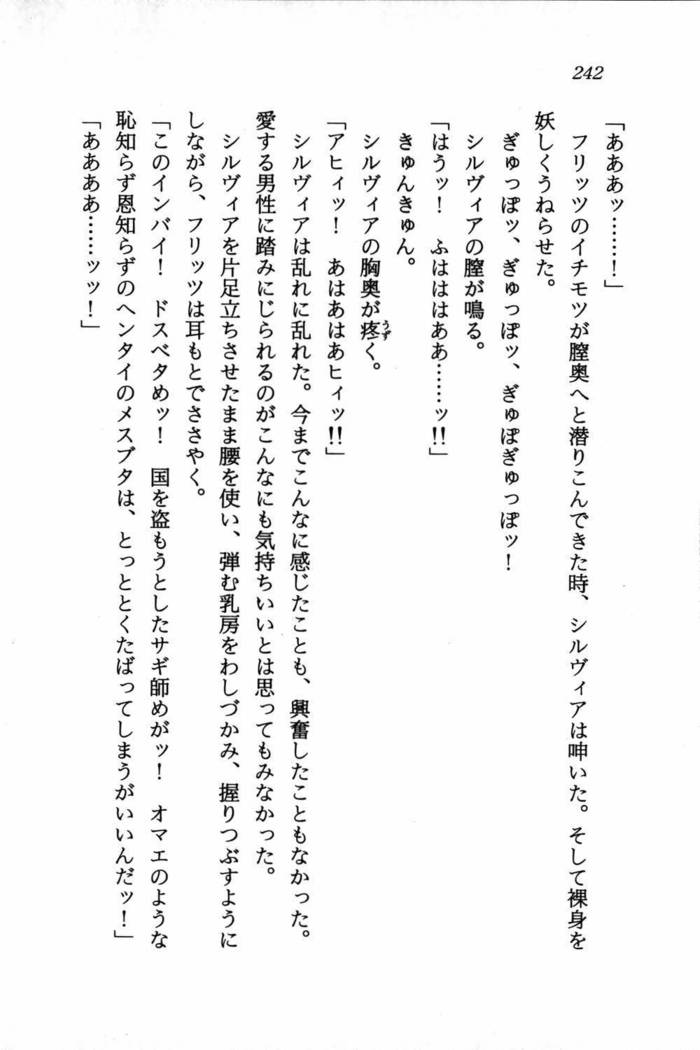 242
「あああッ……！」
　フリッツのイチモツが膣奥へと潜りこんできた時、シルヴィアは呻いた。そして裸身を
妖しくうねらせた。
　ぎゅっぽッ、ぎゅっぽッ、ぎゅぽぎゅっぽッ！
　シルヴィアの膣が鳴る。
「はうッ！　ふはははああ……ッ‼」
　きゅんきゅん。
　シルヴィアの胸奥が疼うずく。
「アヒィッ！　あはあはあヒィッ‼」
　シルヴィアは乱れに乱れた。今までこんなに感じたことも、興奮したこともなかった。
愛する男性に踏みにじられるのがこんなにも気持ちいいとは思ってもみなかった。
　シルヴィアを片足立ちさせたまま腰を使い、弾む乳房をわしづかみ、握りつぶすように
しながら、フリッツは耳もとでささやく。
「このインバイ！　ドスベタめッ！　国を盗もうとしたサギ師めがッ！　オマエのような
恥知らず恩知らずのヘンタイのメスブタは、とっととくたばってしまうがいいんだッ！」
「ああああ……ッッ！」